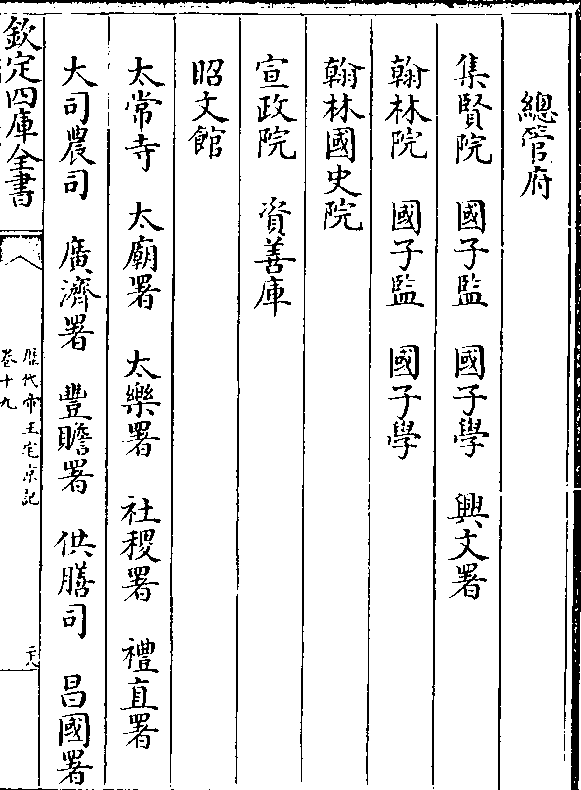 總管府
集賢院　國子監　國子學　興文署
翰林院　國子監　國子學
翰林國史院
宣政院　資善庫
昭文館
太常寺　太廟署　太樂署　社稷署　禮直署
大司農司　廣濟署　豐贍署　供膳司　昌國署
欽定四庫全書
歷代帝王宅京記
卷十九
二十八